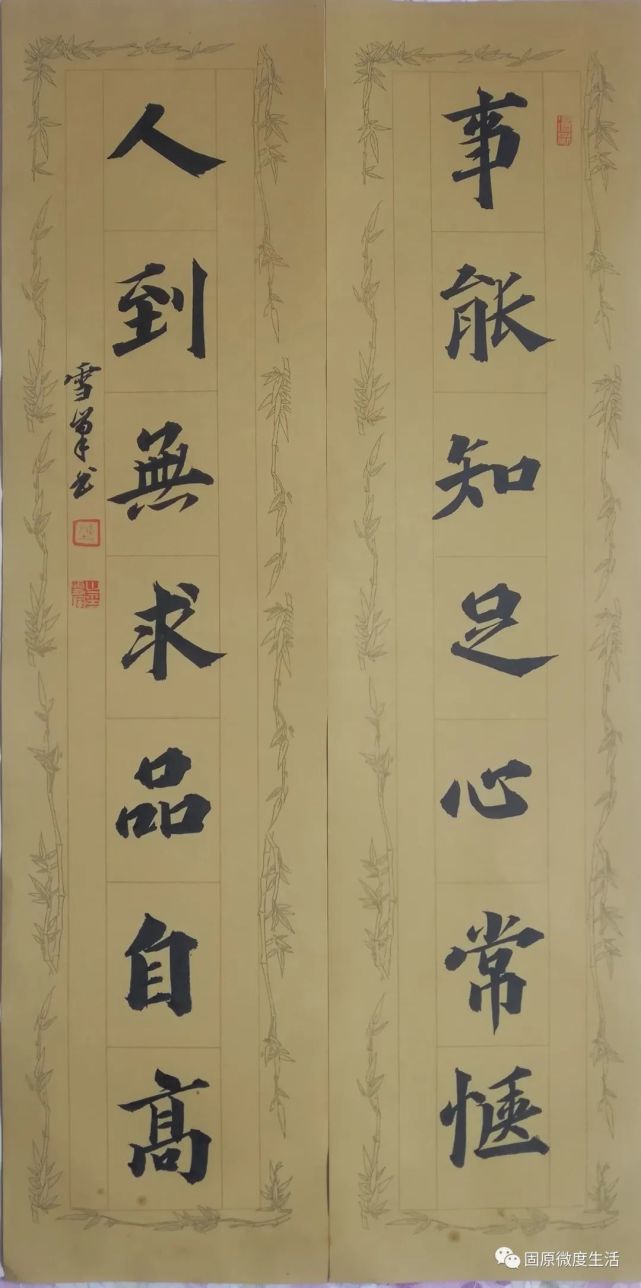 事能知足心常惬
人到無求品自高
雪书
固原微度生活